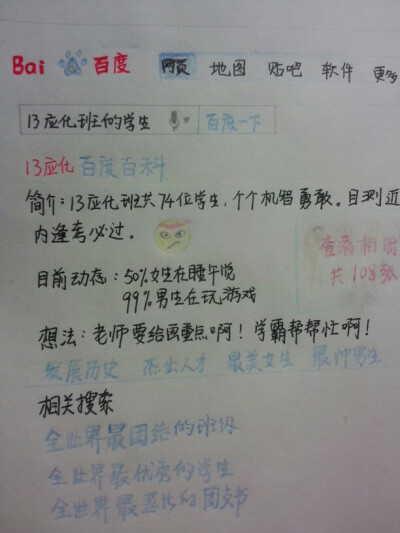 Bai 百度 网页 地图 贴吧 软件 更多
13应化班的学生 百度一下
13应化 百度百科
简介：13应化班共74位学生，个个机智勇敢。目测近
内逢考必过。
查看相册
共108张
目前动态：50%女生在睡午觉
99%男生在玩游戏
想法：老师要给画重点啊！学霸帮帮忙啊！
发展历史 杰出人才 最美女生 最帅男生
相关搜索
全世界最团结的班级
全世界最优秀的学生
全世界最 的团支书